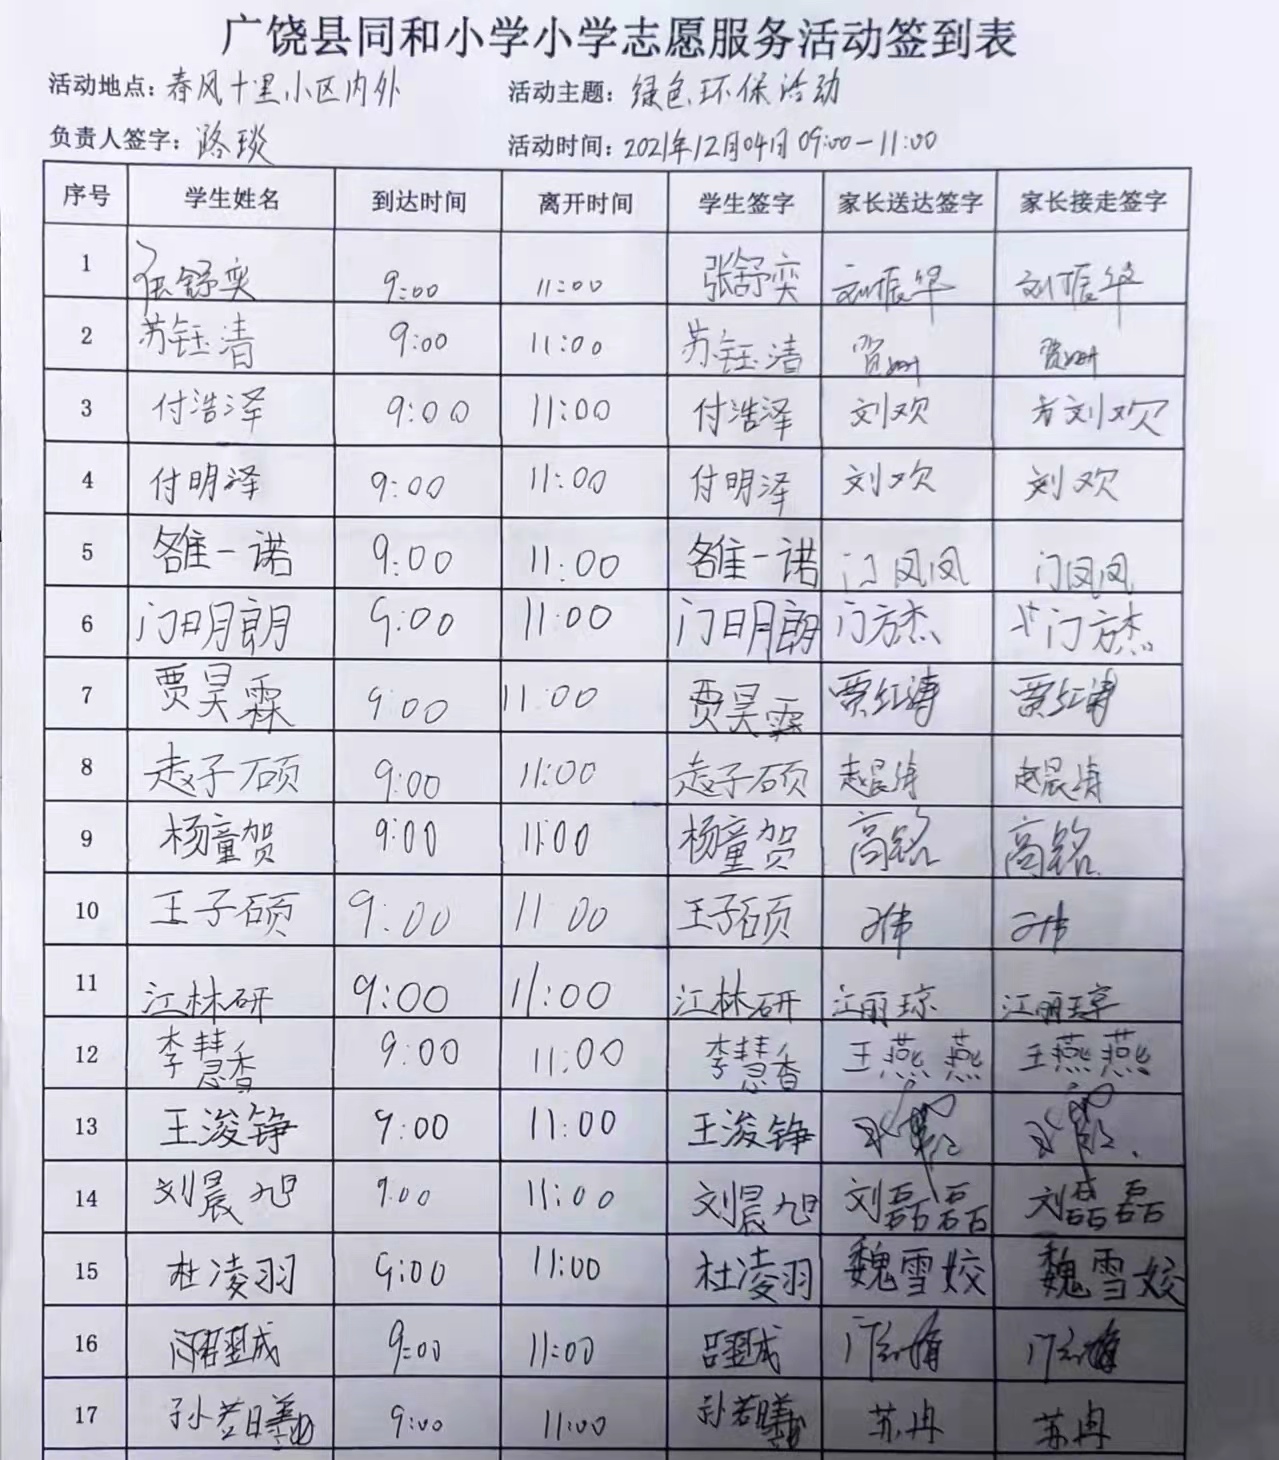 广饶县同和小学小学志愿服务活动签到表
活动地点：春风十里小区内外 活动主题：绿色环保活动
负责人签字：路琰 活动时间：2021年12月04日09:00-11:00
序号 学生姓名 到达时间 离开时间 学生签字 家长送达签字 家长接走签字
1 张舒奕 9:00 11:00 张舒奕 刘振华 刘振华
2 苏钰清 9:00 11:00 苏钰清
3 付浩泽 9:00 11:00 付浩泽 刘欢 刘欢
4 付明泽 9:00 11:00 付明泽 刘欢 刘欢
5 雒一诺 9:00 11:00 雒一诺 门凤凤 门凤凤
6 门明朗 9:00 11:00 门明朗 门方杰 门方杰
7 贾昊霖 9:00 11:00 贾昊霖 贾红涛 贾红涛
8 赵子硕 9:00 11:00 赵子硕 赵晨涛 赵晨涛
9 杨童贺 9:00 11:00 杨童贺 高铭 高铭
10 王子硕 9:00 11 00 王子硕
11 江林研 9:00 11:00 江林研 江丽琼 江丽琼
12 李慧香 9:00 11:00 李慧香 王燕燕 王燕燕
13 王浚铮 9:00 11:00 王浚铮
14 刘晨旭 9:00 11:00 刘晨旭 刘磊磊 刘磊磊
15 杜凌羽 9:00 11:00 杜凌羽 魏雪姣 魏雪姣
16 9:00 11:00
17 孙若曦 9:00 11:00 孙若曦 苏冉 苏冉